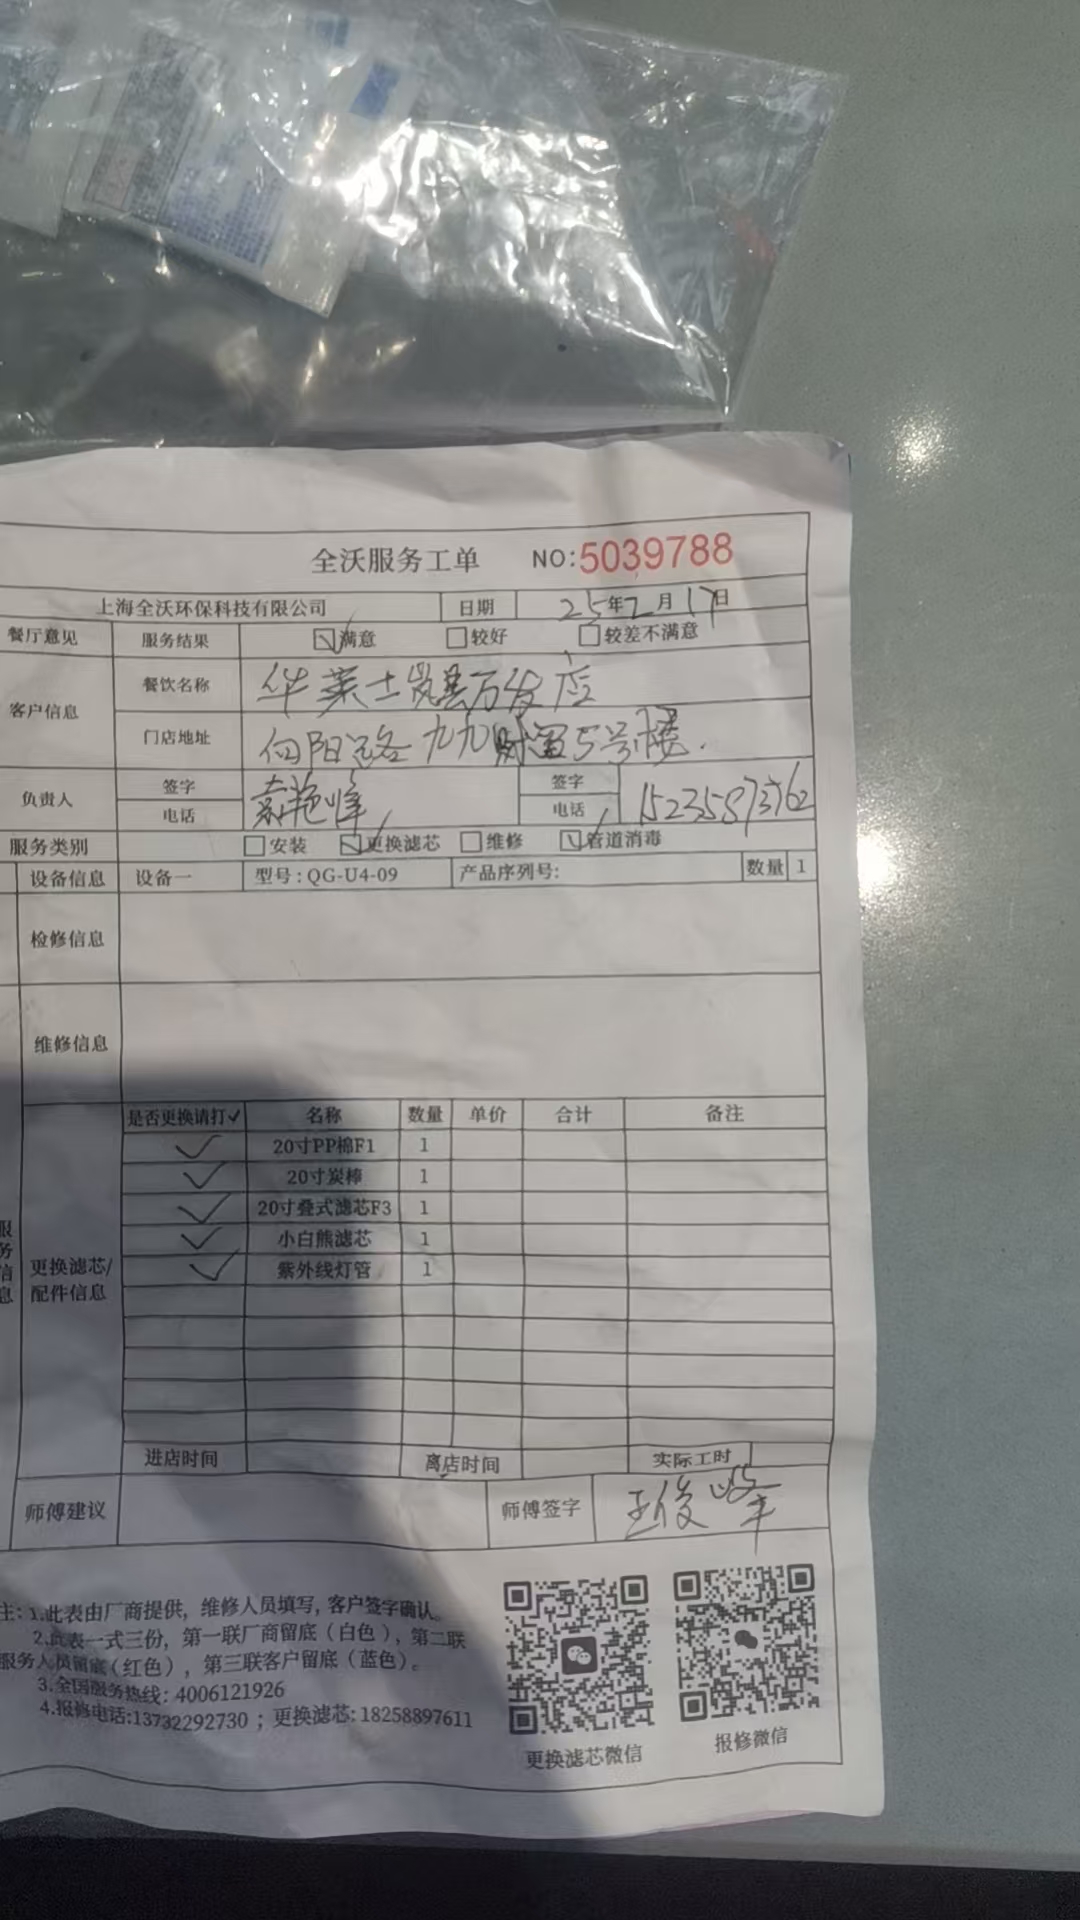 全沃服务工单 NO:5039788
上海全沃环保科技有限公司 日期 25年2月17日
餐厅意见 服务结果 满意 较好 较差不满意
客户信息 餐饮名称 华莱士岚县万发店
门店地址 向阳路九九财富5号楼.
负责人 签字 袁艳峰 签字
电话 电话 15235873762
服务类别 安装 更换滤芯 维修 管道消毒
设备信息 设备一 型号:QG-U4-09 产品序列号: 数量 1
检修信息
维修信息
是否更换请打✓ 名称 数量 单价 合计 备注
✓ 20寸PP棉F1 1
✓ 20寸炭棒 1
✓ 20寸叠式滤芯F3 1
✓ 小白熊滤芯 1
✓ 紫外线灯管 1
服务信息
更换滤芯/
配件信息
进店时间 离店时间 实际工时
师傅建议 师傅签字 王俊峰
注:1.此表由厂商提供,维修人员填写,客户签字确认。
2.此表一式三份,第一联厂商留底(白色),第二联
服务人员留底(红色),第三联客户留底(蓝色)。
3.全国服务热线:4006121926
4.报修电话:13732292730;更换滤芯:18258897611
更换滤芯微信 报修微信